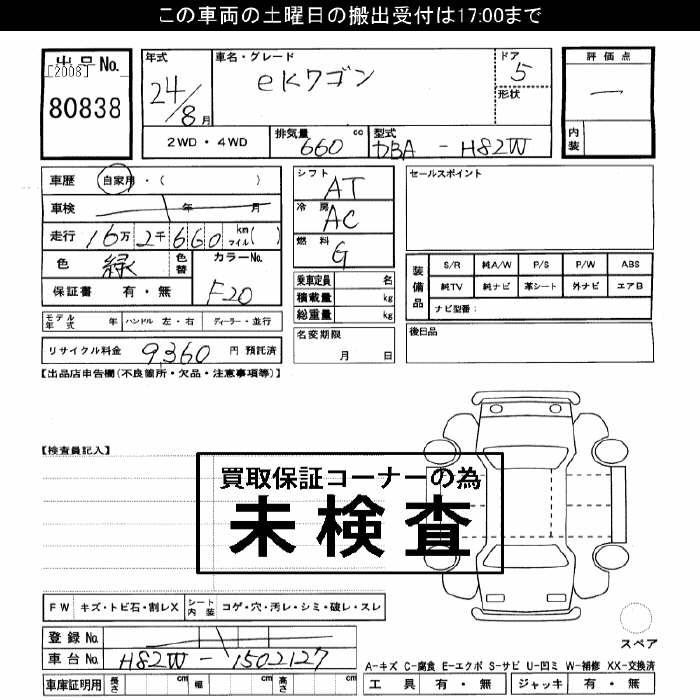 この車両の土曜日の搬出受付は17:00まで
出品No.
[2008]
80838
年式
24/8月
車名・グレード
eKワゴン
ドア
5
形状
評価点
一
内装
2WD・4WD
排気量
660 cc
型式
DBA - H82W
車歴 自家用・( )
車検 年 月
走行 16万2千660 km マイル( )
色 緑 色替
カラーNo.
F20
保証書 有・無
シフト
AT
冷房
AC
燃料
G
乗車定員 名
積載量 kg
総重量 kg
名変期限
月 日
セールスポイント
装備品
S/R 純A/W P/S P/W ABS
純TV 純ナビ 革シート 外ナビ エアB
ナビ型番:
後日品
モデル年式 年 ハンドル 左・右 ディーラー・並行
リサイクル料金 9,360 円 預託済
【出品店申告欄(不良箇所・欠品・注意事項等)】
【検査員記入】
買取保証コーナーの為
未検査
FW キズ・トビ石・割レX シート内装 コゲ・穴・汚レ・シミ・破レ・スレ
スペア
登録No.
車台No. H82W - 1502127
車庫証明用 長さ cm 幅 cm 高さ cm
A-キズ C-腐食 E-エクボ S-サビ U-凹ミ W-補修 XX-交換済
工具 有・無 ジャッキ 有・無